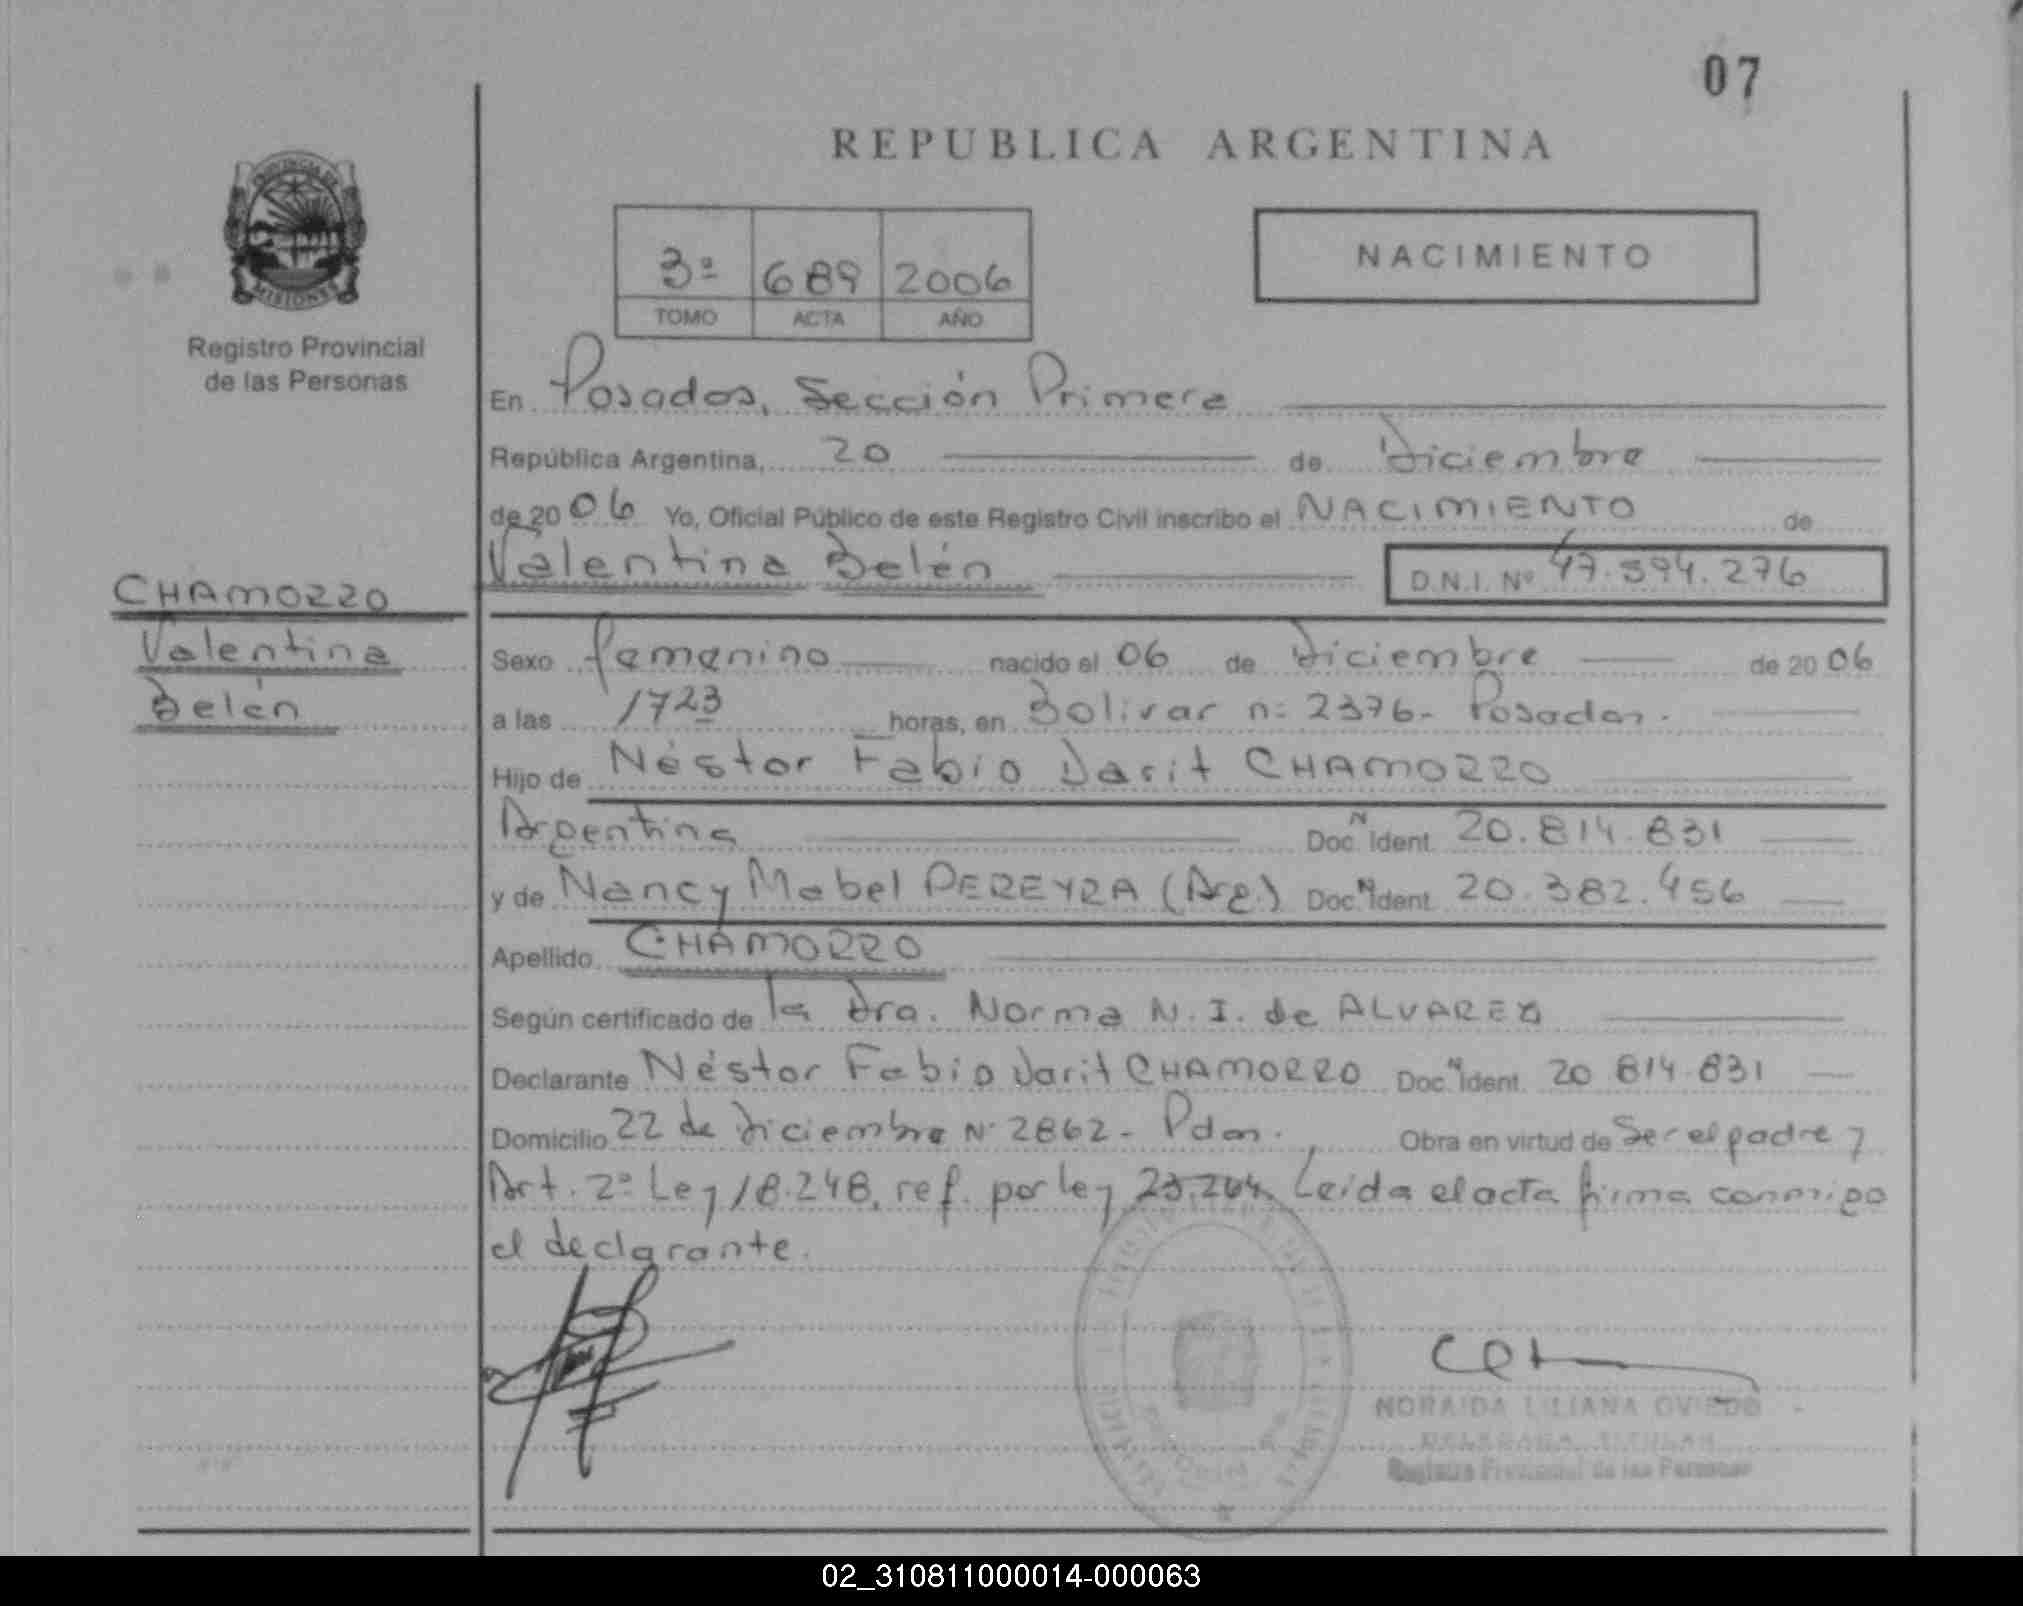 07
REPUBLICA ARGENTINA
PROVINCIA DE
MISIONES
Registro Provincial
de las Personas
3ª 689 2006
TOMO ACTA AÑO
NACIMIENTO
En Posadas, Sección Primera
República Argentina, 20 de Diciembre
de 2006 Yo, Oficial Público de este Registro Civil inscribo el NACIMIENTO de
Valentina Belén D.N.I. Nº 47.594.276
CHAMORRO
Valentina
Belén
Sexo femenino nacido el 06 de Diciembre de 2006
a las 1723 horas, en Bolivar nº 2376- Posadas.
Hijo de Néstor Fabio Darit CHAMORRO
Argentina Doc. N Ident. 20.814.831
y de Nancy Mabel PEREYRA (Arg.) Doc. N Ident. 20.382.456
Apellido CHAMORRO
Según certificado de la Dra. Norma N. I. de ALVAREZ
Declarante Néstor Fabio Darit CHAMORRO Doc. N Ident. 20.814.831
Domicilio 22 de Diciembre Nº 2862- Pdas. Obra en virtud de Ser el padre y
Art. 2º Ley 18.248, ref. por ley 23.264. Leída el acta firma conmigo
el declarante.
NORAIDA LILIANA OVIEDO
DELEGADA TITULAR
Registro Provincial de las Personas
02_310811000014-000063